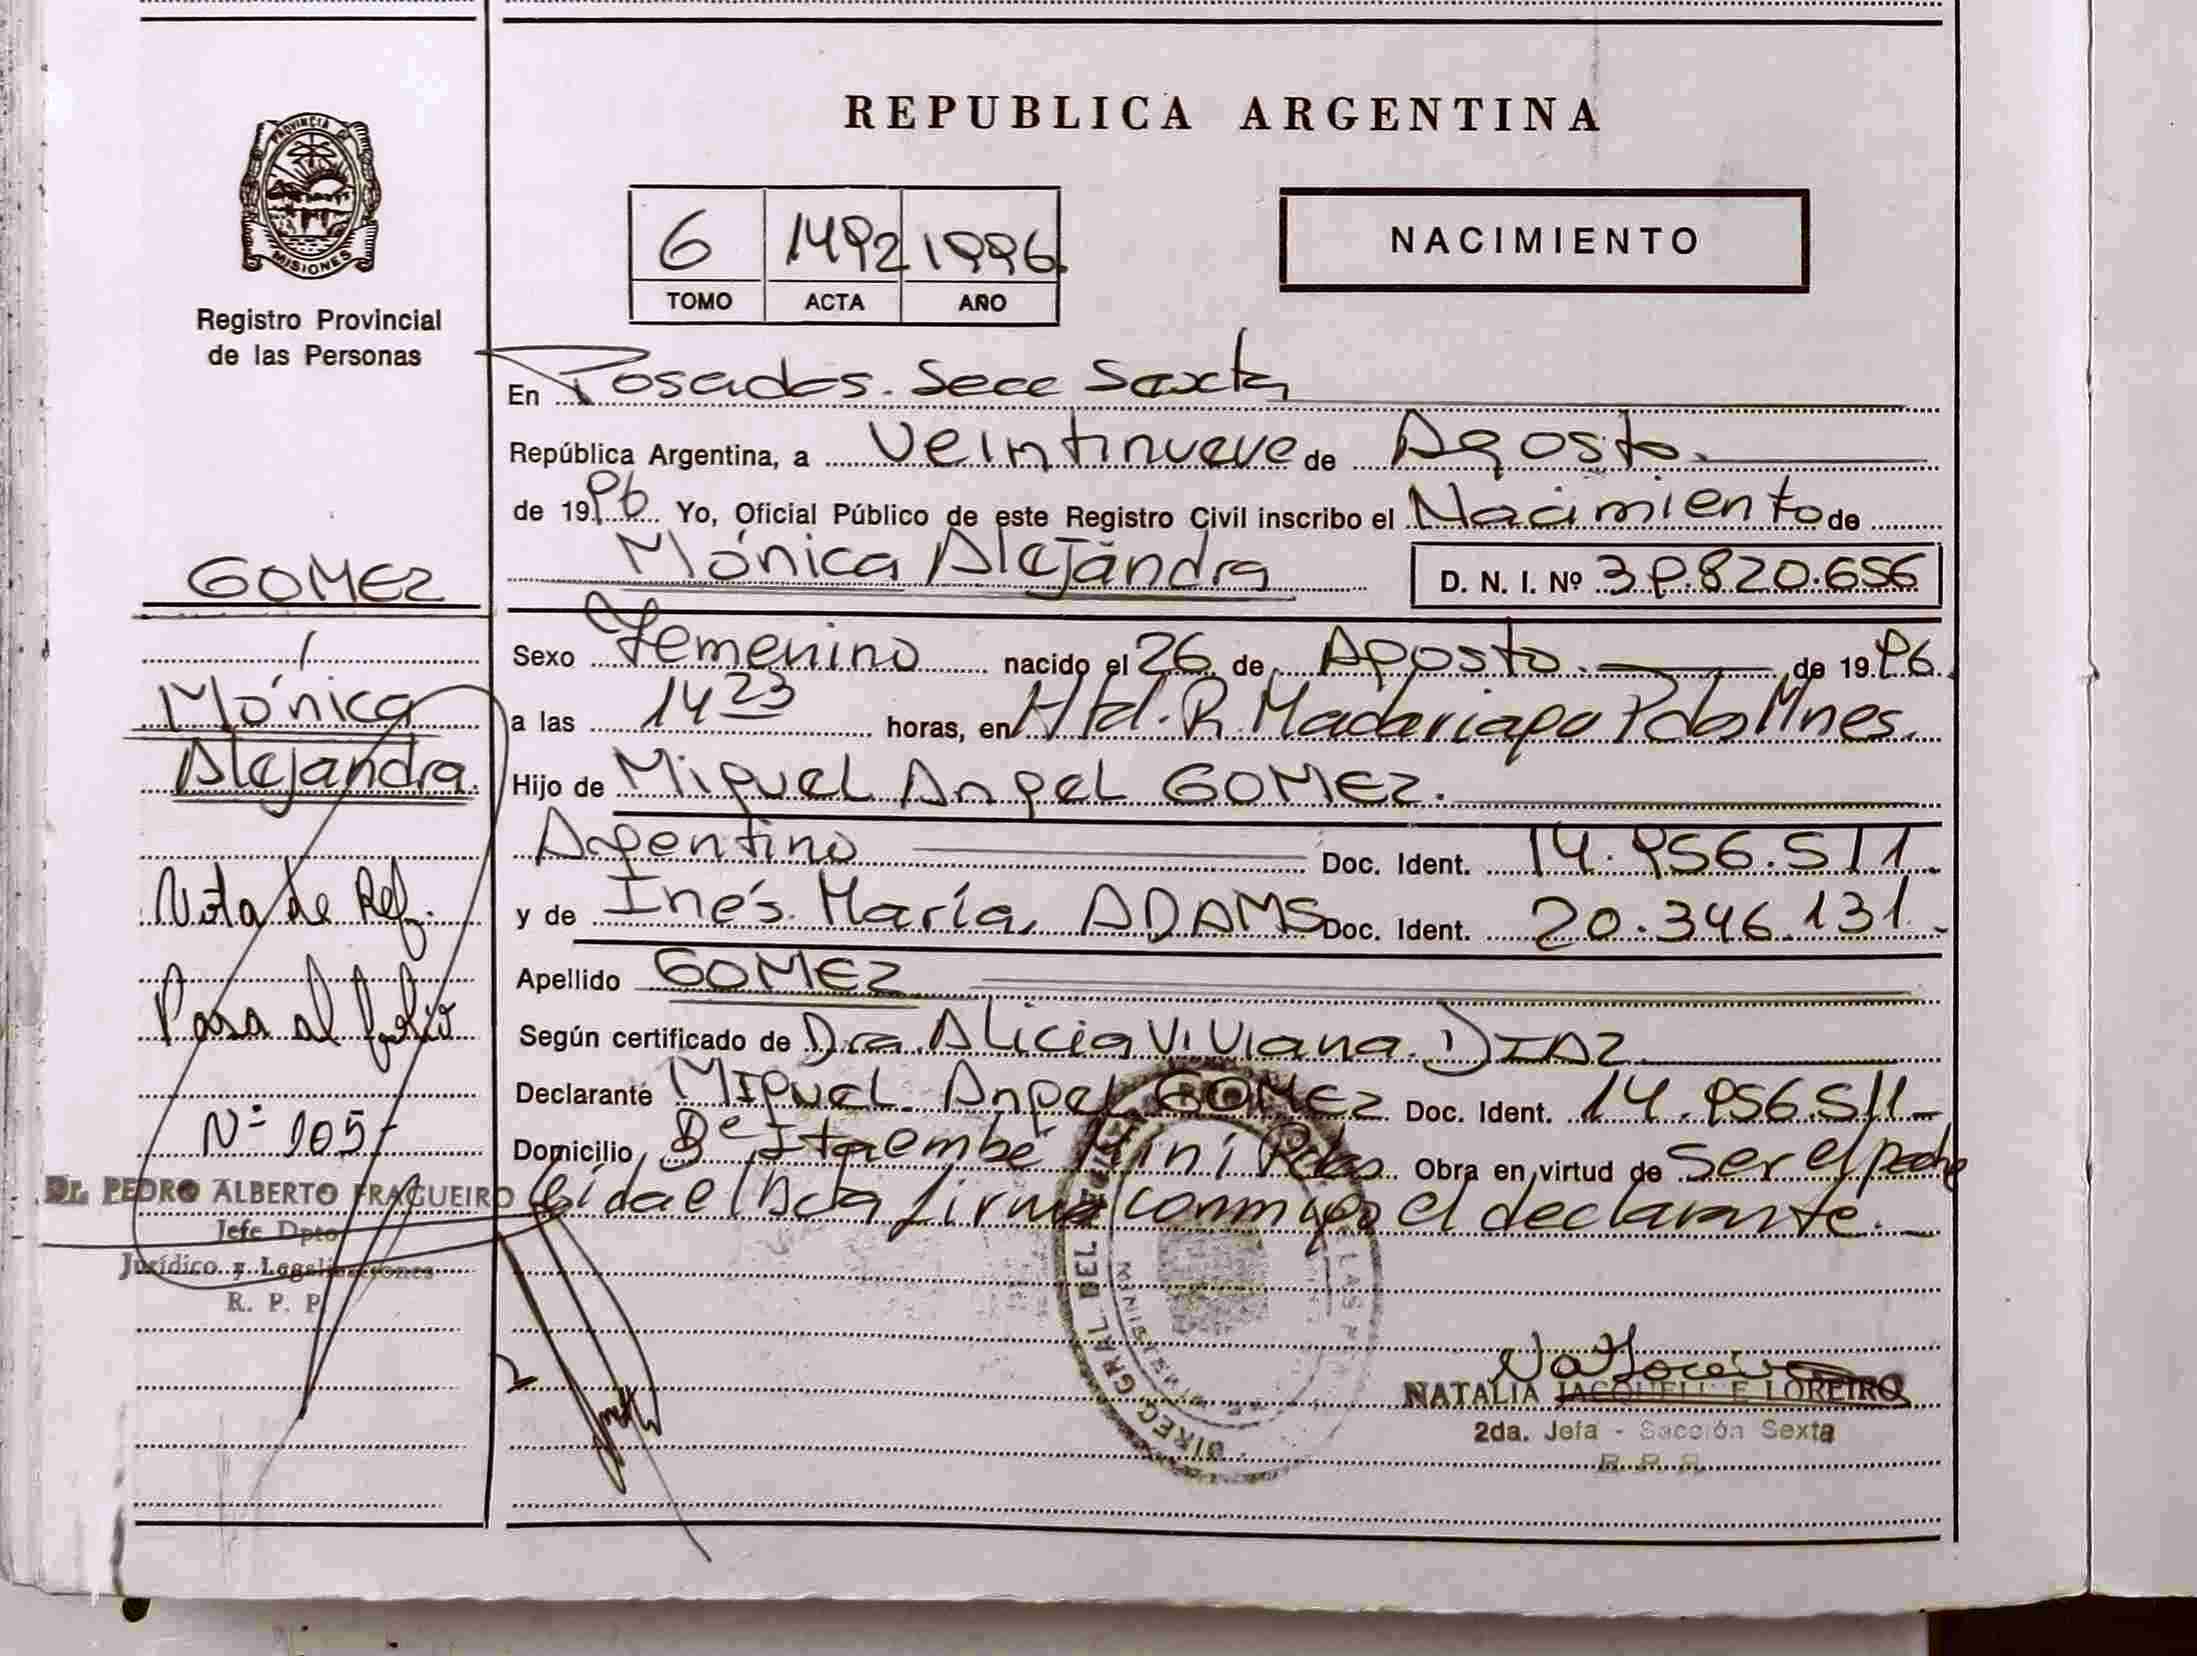 REPUBLICA ARGENTINA
PROVINCIA DE
MISIONES
Registro Provincial
de las Personas
6 1492 1996
TOMO ACTA AÑO
NACIMIENTO
En Posadas. Secc Sexta
República Argentina, a Veintinueve de Agosto.
de 1996 Yo, Oficial Público de este Registro Civil inscribo el Nacimiento de
Mónica Alejandra D. N. I. Nº 39.820.656
Sexo Femenino nacido el 26 de Agosto. de 1996.
a las 14 23 horas, en Htal. R. Madariaga Pdas Mnes.
Hijo de Miguel Angel GOMEZ.
Argentino Doc. Ident. 14.956.511.
y de Inés María, ADAMS Doc. Ident. 20.346.131.
Apellido GOMEZ
Según certificado de Dra. Alicia Viviana DIAZ
Declarante Miguel Angel GOMEZ Doc. Ident. 14.956.511
Domicilio Bº Itaembé Miní Pdas Obra en virtud de ser el padre
Leida el Acta firma conmigo el declarante.
GOMEZ
Mónica
Alejandra.
Nota de Ref.
Pasa al folio
Nº 105
Dr. PEDRO ALBERTO FRAGUEIRO
Jefe Dpto
Jurídico y Legalizaciones
R. P. P.
DIREC. GRAL DEL
LAS P
NATALIA JACQUELINE LOREIRO
2da. Jefa - Sección Sexta
R. P. P.